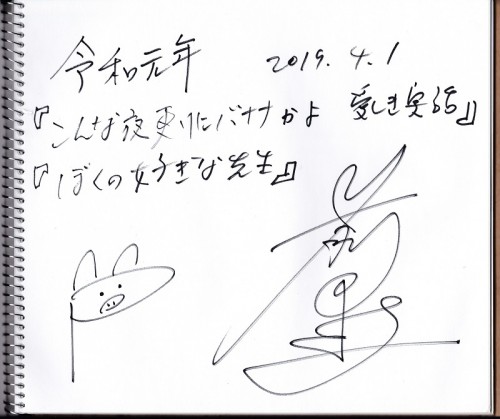 令和元年 2019.4.1
『こんな夜更けにバナナかよ 愛しき実話』
『ぼくの好きな先生』